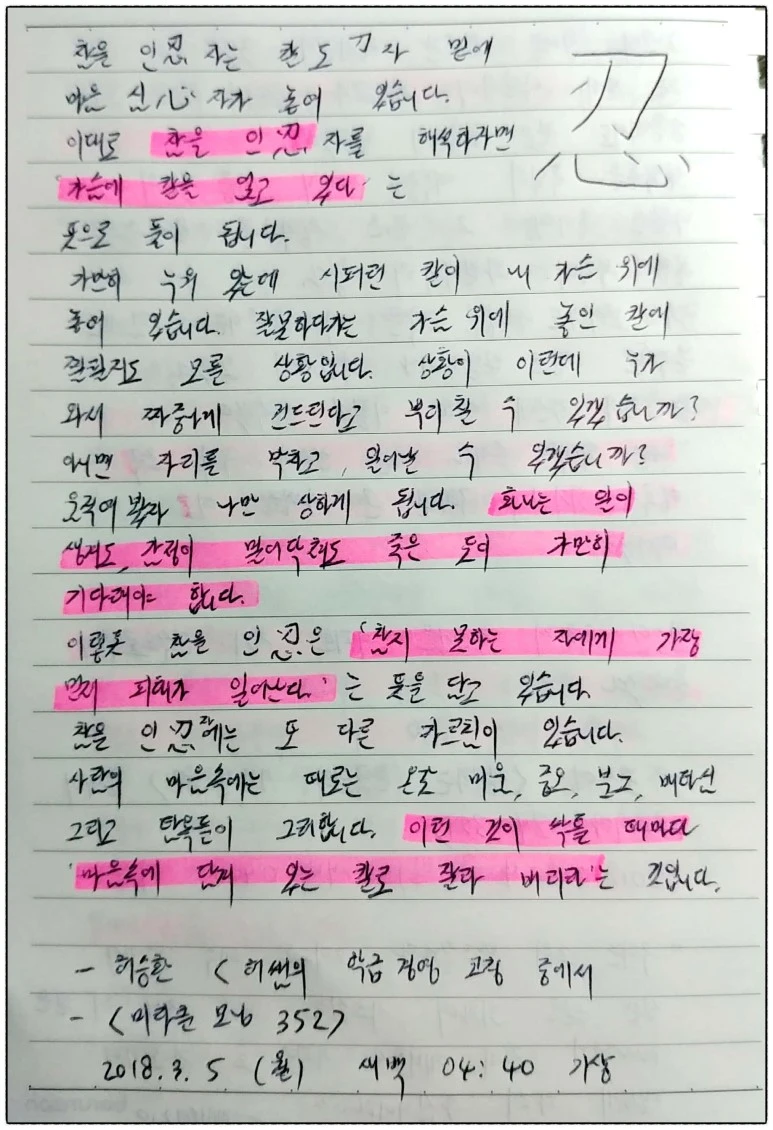 참을 인忍 자는 칼 도刀자 밑에
忍
마음 심心 자가 놓여 있습니다.
이대로 참을 인忍 자를 해석하자면
가슴에 칼을 얹고 있다 는
뜻으로 풀이 됩니다.
가만히 누워 있는데 시퍼런 칼이 내 가슴 위에
놓여 있습니다. 잘못하다가는 가슴 위에 놓인 칼에
찔릴지도 모를 상황입니다. 상황이 이런데 누가
와서 짜증나게 건드린다고 뿌리칠 수 있겠습니까?
아니면 자리를 박차고, 일어날 수 있겠습니까?
움직여봤자 나만 상하게 됩니다. 화나는 일이
생겨도, 감정이 밀어닥쳐도 죽은 듯이 가만히
기다려야 합니다.
이렇듯 참을 인忍은 '참지 못하는 자에게 가장
먼저 피해가 일어난다.'는 뜻을 담고 있습니다.
참을 인忍자에는 또 다른 가르침이 있습니다.
사람의 마음속에는 때로는 온갖 미움, 증오, 분노, 배타심
그리고 탐욕들이 그러합니다. 이런 것이 싹틀 때마다
'마음속에 담겨 있는 칼로 잘라 버리라'는 것입니다.
- 허승환 < 허쌤의 학급경영 코칭 중에서
- <미라클 모닝 352>
2018. 3. 5 (월) 새벽 04:40 기상